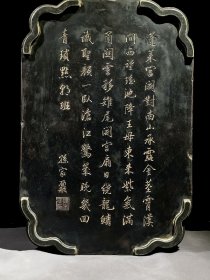 蓬萊宮闕對南山承露金莖霄漢
間西望瑤池降王母東來紫氣滿
函關雲移雉尾開宮扇日繞龍鱗
識聖顏一臥滄江驚歲晚幾回
青瑣點朝班
孫家鼐